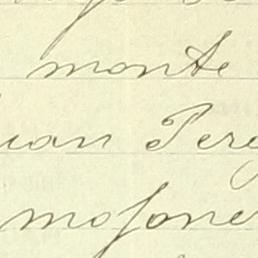 monte
uan Pere
mosone